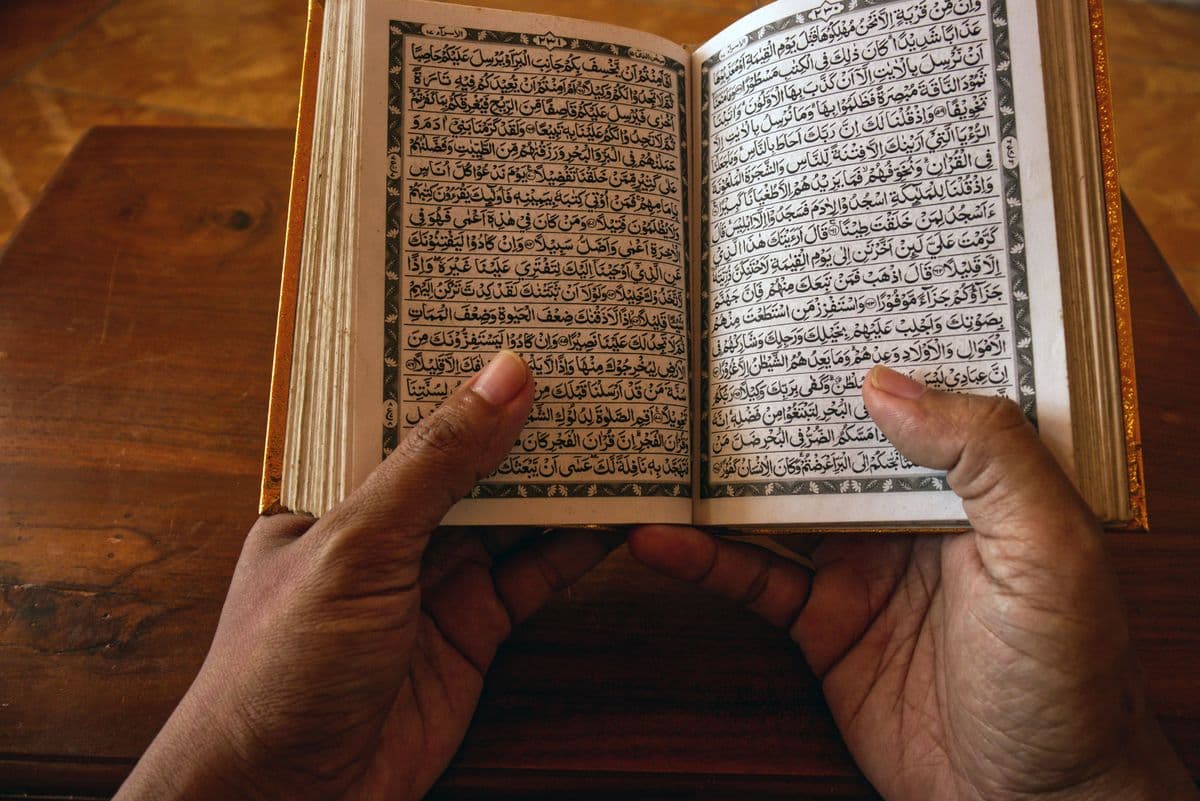 ٢٣٠
وَاِنْ مِّنْ قَرْيَةٍ اِلَّا نَحْنُ مُهْلِكُوْهَا قَبْلَ يَوْمِ الْقِيٰمَةِ اَوْ مُعَذِّبُوْهَا
عَذَابًا شَدِيْدًا كَانَ ذٰلِكَ فِى الْكِتٰبِ مَسْطُوْرًا وَمَا مَنَعَنَا
اَنْ نُّرْسِلَ بِالْاٰيٰتِ اِلَّا اَنْ كَذَّبَ بِهَا الْاَوَّلُوْنَ وَاٰتَيْنَا
ثَمُوْدَ النَّاقَةَ مُبْصِرَةً فَظَلَمُوْا بِهَا وَمَا نُرْسِلُ بِالْاٰيٰتِ اِلَّا
تَخْوِيْفًا وَاِذْ قُلْنَا لَكَ اِنَّ رَبَّكَ اَحَاطَ بِالنَّاسِ وَمَا جَعَلْنَا
الرُّءْيَا الَّتِيْٓ اَرَيْنٰكَ اِلَّا فِتْنَةً لِّلنَّاسِ وَالشَّجَرَةَ الْمَلْعُوْنَةَ
فِى الْقُرْاٰنِ وَنُخَوِّفُهُمْ فَمَا يَزِيْدُهُمْ اِلَّا طُغْيَانًا كَبِيْرًا
وَاِذْ قُلْنَا لِلْمَلٰٓئِكَةِ اسْجُدُوْا لِاٰدَمَ فَسَجَدُوْٓا اِلَّآ اِبْلِيْسَ قَالَ
ءَاَسْجُدُ لِمَنْ خَلَقْتَ طِيْنًا قَالَ اَرَءَيْتَكَ هٰذَا الَّذِيْ
كَرَّمْتَ عَلَيَّ لَئِنْ اَخَّرْتَنِ اِلٰى يَوْمِ الْقِيٰمَةِ لَاَحْتَنِكَنَّ ذُرِّيَّتَهٗٓ
اِلَّا قَلِيْلًا قَالَ اذْهَبْ فَمَنْ تَبِعَكَ مِنْهُمْ فَاِنَّ جَهَنَّمَ
جَزَآؤُكُمْ جَزَآءً مَّوْفُوْرًا وَاسْتَفْزِزْ مَنِ اسْتَطَعْتَ مِنْهُمْ
بِصَوْتِكَ وَاَجْلِبْ عَلَيْهِمْ بِخَيْلِكَ وَرَجِلِكَ وَشَارِكْهُمْ فِى
الْاَمْوَالِ وَالْاَوْلَادِ وَعِدْهُمْ وَمَا يَعِدُهُمُ الشَّيْطٰنُ اِلَّا غُرُوْرًا
اِنَّ عِبَادِيْ لَيْسَ سُلْطٰنٌ وَكَفٰى بِرَبِّكَ وَكِيْلًا رَبُّكُمُ
فِى الْبَحْرِ لِتَبْتَغُوْا مِنْ فَضْلِهٖ اِنَّهٗ
مَسَّكُمُ الضُّرُّ فِى الْبَحْرِ ضَلَّ مَنْ
نَجّٰىكُمْ اِلَى الْبَرِّ اَعْرَضْتُمْ وَكَانَ الْاِنْسَانُ كَفُوْرًا
٢٣١
اَفَاَمِنْتُمْ اَنْ يَّخْسِفَ بِكُمْ جَانِبَ الْبَرِّ اَوْ يُرْسِلَ عَلَيْكُمْ حَاصِبًا
ثُمَّ لَا تَجِدُوْا لَكُمْ وَكِيْلًا اَمْ اَمِنْتُمْ اَنْ يُّعِيْدَكُمْ فِيْهِ تَارَةً
اُخْرٰى فَيُرْسِلَ عَلَيْكُمْ قَاصِفًا مِّنَ الرِّيْحِ فَيُغْرِقَكُمْ بِمَا كَفَرْتُمْ
ثُمَّ لَا تَجِدُوْا لَكُمْ عَلَيْنَا بِهٖ تَبِيْعًا وَلَقَدْ كَرَّمْنَا بَنِيْٓ اٰدَمَ وَ
حَمَلْنٰهُمْ فِى الْبَرِّ وَالْبَحْرِ وَرَزَقْنٰهُمْ مِّنَ الطَّيِّبٰتِ وَفَضَّلْنٰهُمْ
عَلٰى كَثِيْرٍ مِّمَّنْ خَلَقْنَا تَفْضِيْلًا يَوْمَ نَدْعُوْا كُلَّ اُنَاسٍ
بِاِمَامِهِمْ فَمَنْ اُوْتِيَ كِتٰبَهٗ بِيَمِيْنِهٖ فَاُولٰٓئِكَ يَقْرَءُوْنَ كِتٰبَهُمْ
وَلَا يُظْلَمُوْنَ فَتِيْلًا وَمَنْ كَانَ فِيْ هٰذِهٖٓ اَعْمٰى فَهُوَ فِى
الْاٰخِرَةِ اَعْمٰى وَاَضَلُّ سَبِيْلًا وَاِنْ كَادُوْا لَيَفْتِنُوْنَكَ
عَنِ الَّذِيْٓ اَوْحَيْنَآ اِلَيْكَ لِتَفْتَرِيَ عَلَيْنَا غَيْرَهٗ وَاِذًا
لَّاتَّخَذُوْكَ خَلِيْلًا وَلَوْلَآ اَنْ ثَبَّتْنٰكَ لَقَدْ كِدْتَّ تَرْكَنُ اِلَيْهِمْ
شَيْئًا قَلِيْلًا اِذًا لَّاَذَقْنٰكَ ضِعْفَ الْحَيٰوةِ وَضِعْفَ الْمَمَاتِ
ثُمَّ لَا تَجِدُ لَكَ عَلَيْنَا نَصِيْرًا وَاِنْ كَادُوْا لَيَسْتَفِزُّوْنَكَ مِنَ
الْاَرْضِ لِيُخْرِجُوْكَ مِنْهَا وَاِذًا لَّا اِلَّا قَلِيْلًا
سُنَّةَ مَنْ قَدْ اَرْسَلْنَا قَبْلَكَ مِنْ لِسُنَّتِنَا
تَحْوِيْلًا اَقِمِ الصَّلٰوةَ لِدُلُوْكِ الشَّمْسِ
وَقُرْاٰنَ الْفَجْرِ اِنَّ قُرْاٰنَ الْفَجْرِ كَانَ
فَتَهَجَّدْ بِهٖ نَافِلَةً لَّكَ عَسٰٓى اَنْ يَّبْعَثَكَ